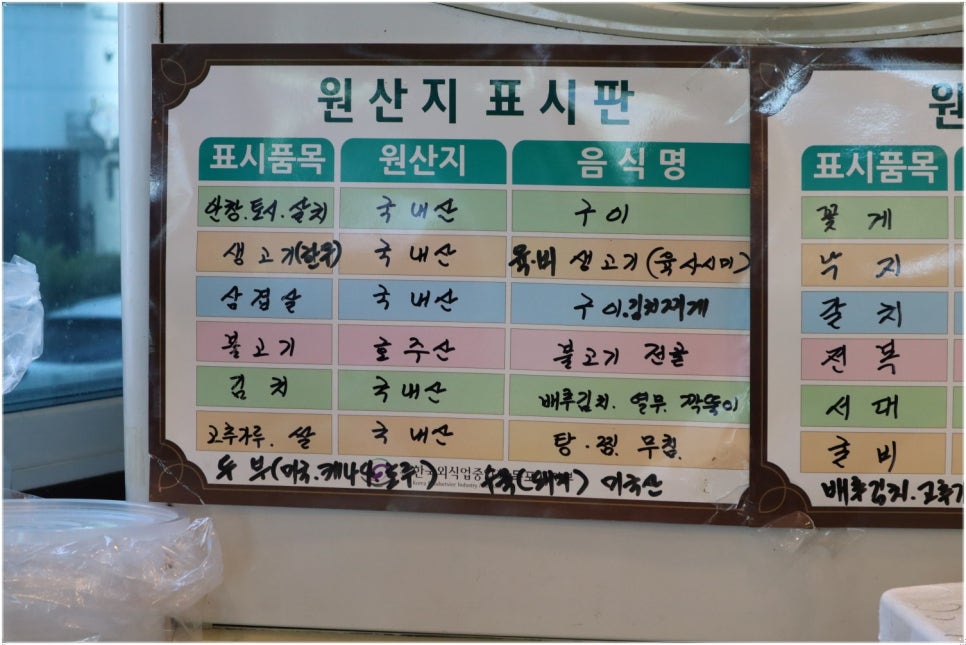 원산지 표시판
표시품목 원산지 음식명
안창.토시.살치 국내산 구이
생고기(한우) 국내산 육.비 생고기(육사시미)
삼겹살 국내산 구이.김치찌게
불고기 호주산 불고기 전골
김치 국내산 배추김치. 열무. 깍뚝이
고추가루. 쌀 국내산 탕.찜.무침.
두부(미국.캐나다.호주) 미국산
한국외식업중
원
표시품목
꽃게
낙지
갈치
전복
서대
굴비
배추김치.고추가